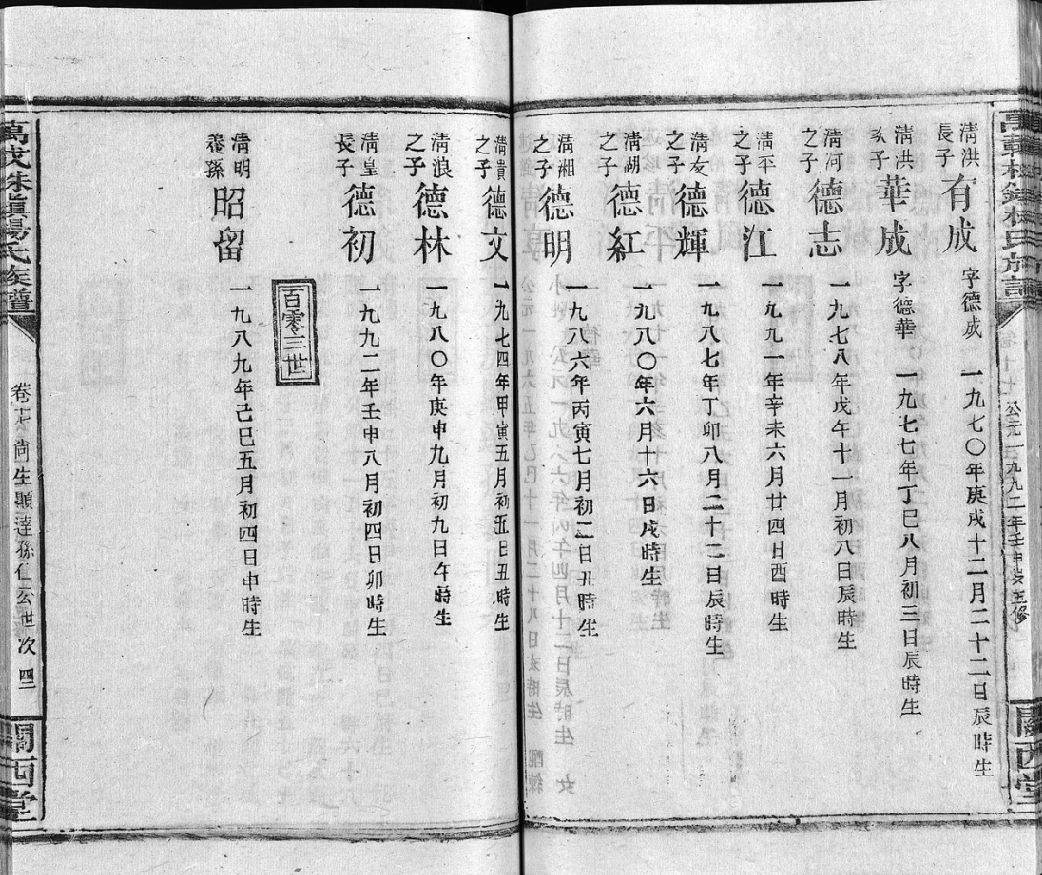 公元一九九二年壬申歲五修
清洪長子 有成 字德成 一九七〇年庚戌十二月二十二日辰時生
清洪次子 華成 字德華 一九七七年丁巳八月初三日辰時生
清河之子 德志 一九七八年戊午十一月初八日辰時生
清平之子 德江 一九九一年辛未六月廿四日酉時生
清友之子 德輝 一九八七年丁卯八月二十二日辰時生
清湖之子 德紅 一九八〇年六月十六日戌時生
清湘之子 德明 一九八六年丙寅七月初二日丑時生
清貴之子 德文 一九七四年甲寅五月初五日丑時生
清浪之子 德林 一九八〇年庚申九月初九日午時生
清皇長子 德初 一九九二年壬申八月初四日卯時生
百零三世
清明養孫 昭留 一九八九年己巳五月初四日申時生
萬茂珠嶺楊氏族譜
尚生顯達孫仁公世次 四三
關西堂